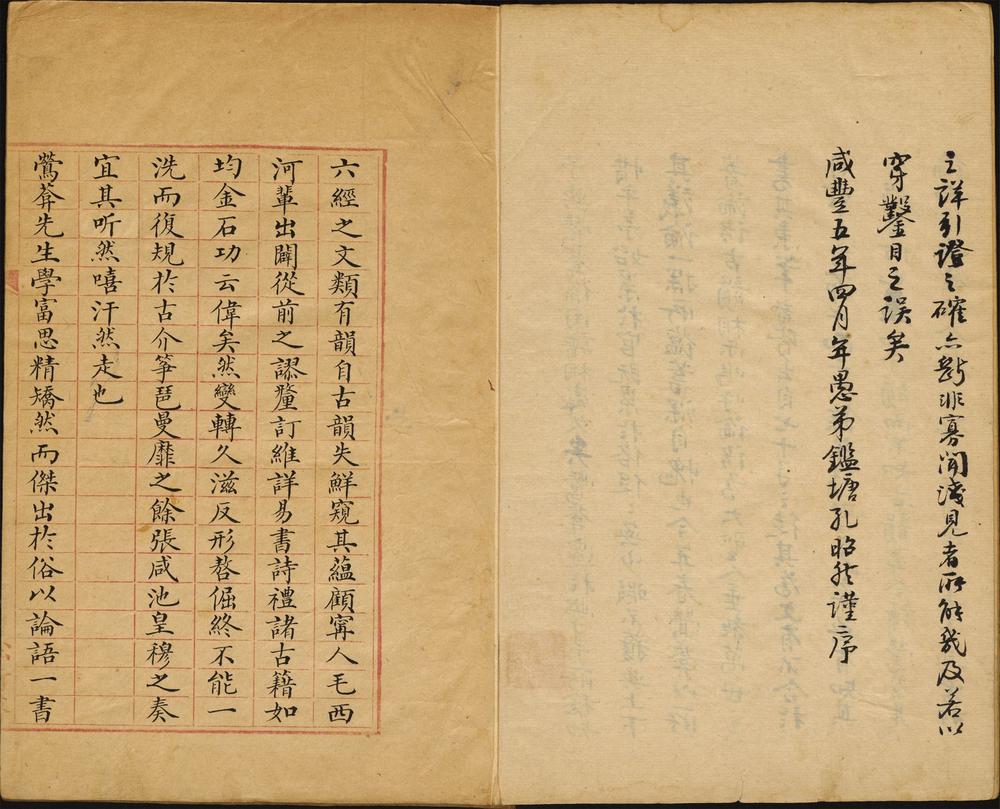 之詳引證之確亦斷非寡聞淺見者所能幾及若以
穿鑿目之誤矣
咸豐五年四月年愚弟鑑塘孔昭然謹序
六經之文類有韻自古韻失鮮窺其蘊顧寗人毛西
河輩出闢從前之謬釐訂維詳易書詩禮諸古籍如
均金石功云偉矣然變轉久滋反形嗸倔終不能一
洗而復規於古介箏琶曼靡之餘張咸池皇穆之奏
宜其听然嘻汗然走也
鶯莽先生學富思精矯然而傑出於俗以論語一書